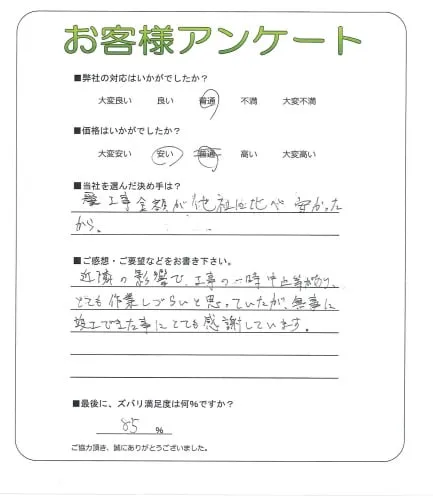 お客様アンケート
■弊社の対応はいかがでしたか？
大変良い 良い 普通 不満 大変不満
■価格はいかがでしたか？
大変安い 安い 普通 高い 大変高い
■当社を選んだ決め手は？
工事金額が他社に比べ安かった
から。
■ご感想・ご要望などをお書き下さい。
近隣の影響で、工事の一時中止等があり、
とても作業しづらいと思っていたが、無事に
竣工できた事にとても感謝しています。
■最後に、ズバリ満足度は何%ですか？
85 %
ご協力頂き、誠にありがとうございました。